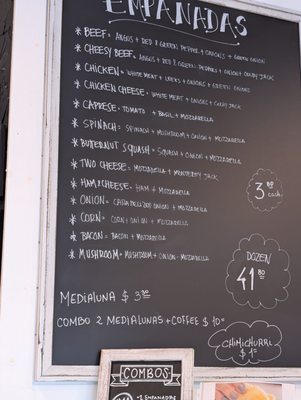 EMPANADAS
* BEEF = ANGUS + RED & GREEN PEPPERS + ONIONS + GREEN ONION
* CHEESY BEEF = ANGUS + RED & GREEN PEPPERS + ONIONS + COLBY JACK
* CHICKEN = WHITE MEAT + LEEKS + ONIONS + GREEN ONIONS
* CHICKEN CHEESE = WHITE MEAT + ONIONS + COLBY JACK
* CAPRESE = TOMATO + BASIL + MOZZARELLA
* SPINACH = SPINACH + MUSHROOM + ONION + MOZZARELLA
* BUTTERNUT SQUASH = SQUASH + ONION + MOZZARELLA
* TWO CHEESE = MOZZARELLA + MONTEREY JACK
* HAM & CHEESE = HAM + MOZZARELLA
* ONION = CARAMELIZED ONION + MOZZARELLA
* CORN = CORN + ONION + MOZZARELLA
* BACON = BACON + MOZZARELLA
* MUSHROOM = MUSHROOM + ONION + MOZZARELLA
3.80
each
DOZEN
41.80
MEDIALUNA $ 3.
COMBO 2 MEDIALUNAS + COFFEE $ 10.
CHIMICHURRI
$ 1.
COMBOS
2 EMPANADAS